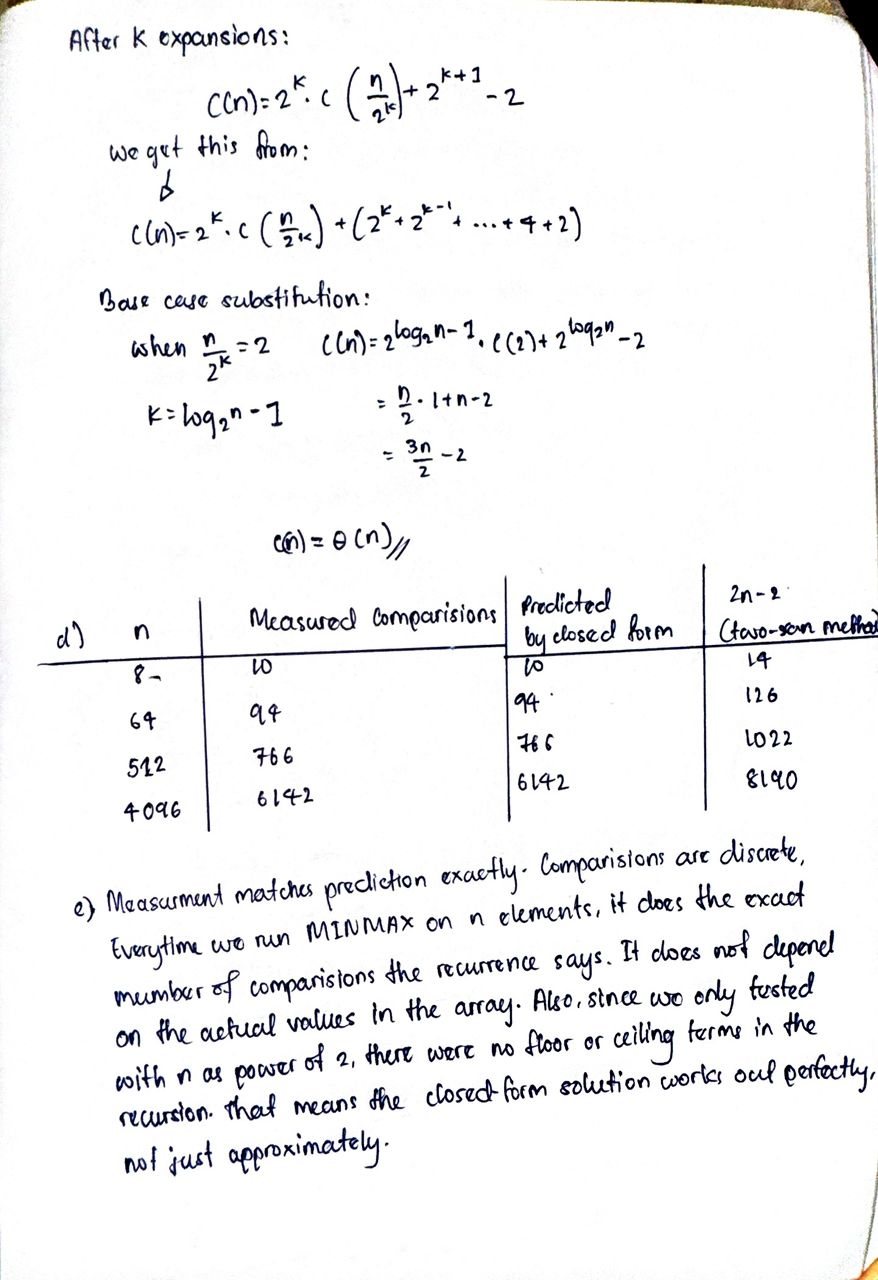 After K expansions:
C(n) = 2^K · C (n/2^K) + 2^(K+1) - 2
We get this from:
↓
C(n) = 2^K · C (n/2^K) + (2^K + 2^(K-1) + ... + 4 + 2)
Base case substitution:
when n/2^K = 2 C(n) = 2^(log₂n - 1) · C(2) + 2^(log₂n) - 2
K = log₂n - 1 = n/2 · 1 + n - 2
= 3n/2 - 2
C(n) = θ(n) //
d) n | Measured Comparisions | Predicted by closed form | 2n-2 (two-scan method)
8 | 10 | 10 | 14
64 | 94 | 94 | 126
512 | 766 | 766 | 1022
4096 | 6142 | 6142 | 8190
e) Measurment matches prediction exactly. Comparisions are discrete,
Everytime we run MINMAX on n elements, it does the exact
number of comparisions the recurrence says. It does not depend
on the actual values in the array. Also, since we only tested
with n as power of 2, there were no floor or ceiling terms in the
recursion. That means the closed-form solution works out perfectly,
not just approximately.